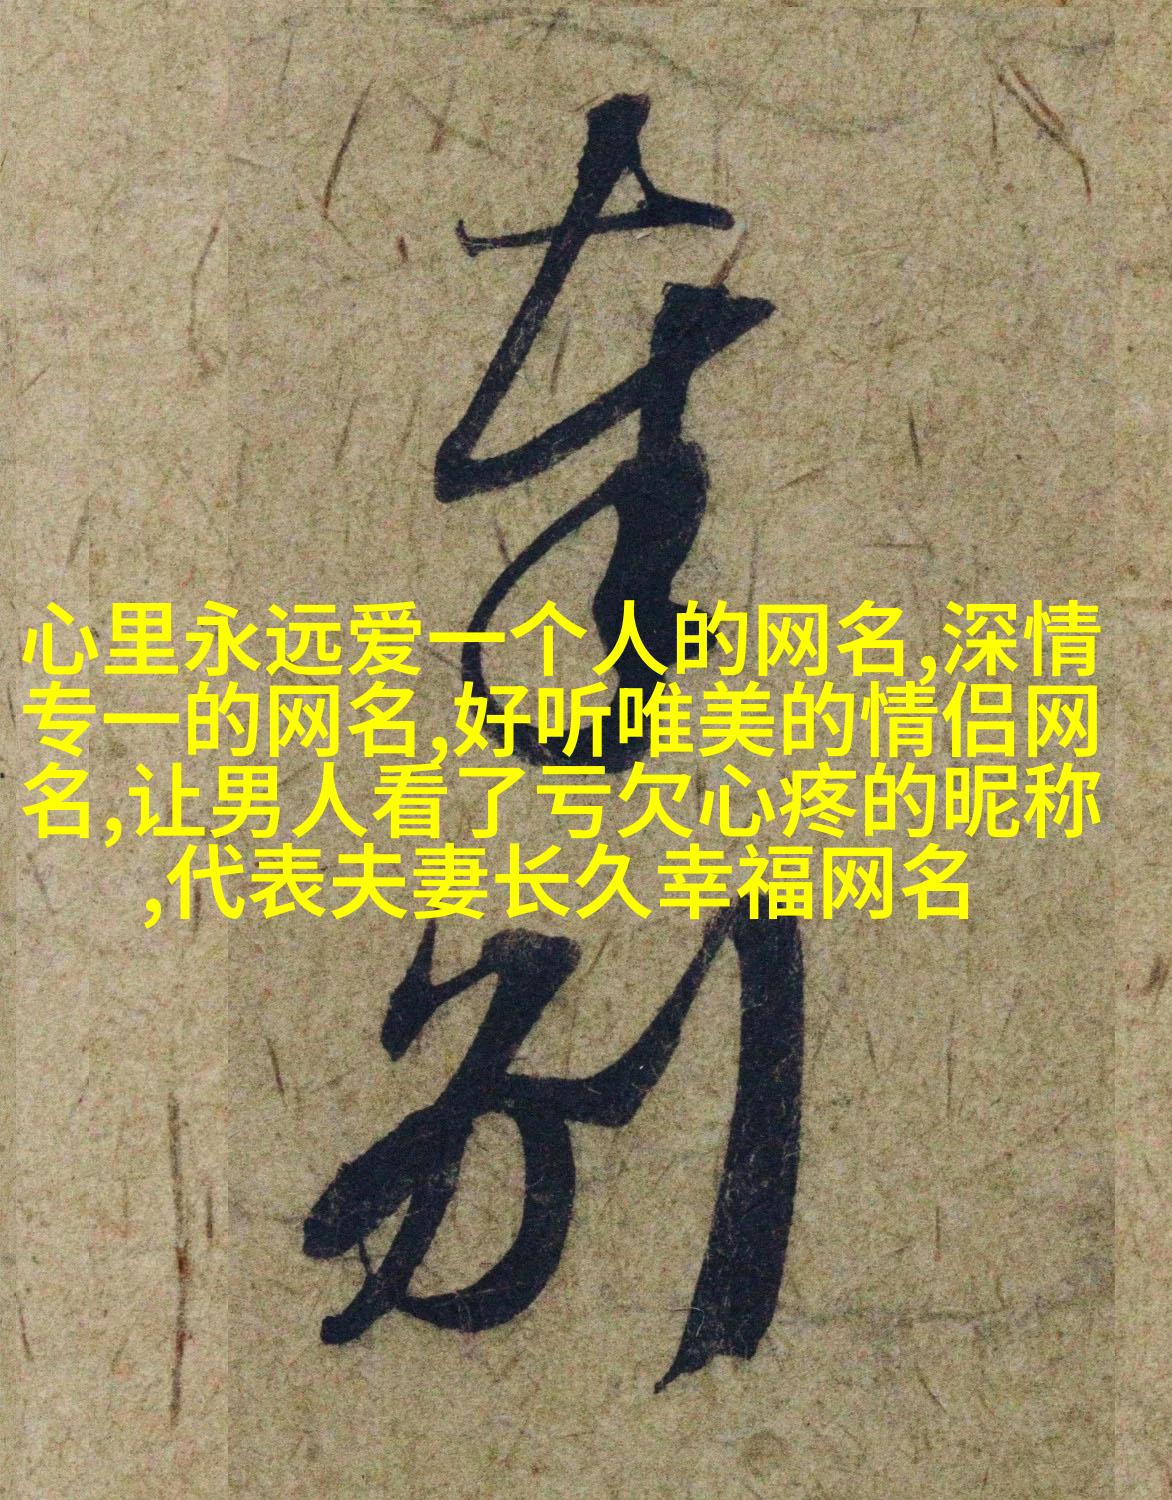 心里永远爱一个人的网名,深情
专一的网名,好听唯美的情侣网
名,让男人看了亏欠心疼的昵称
,代表夫妻长久幸福网名